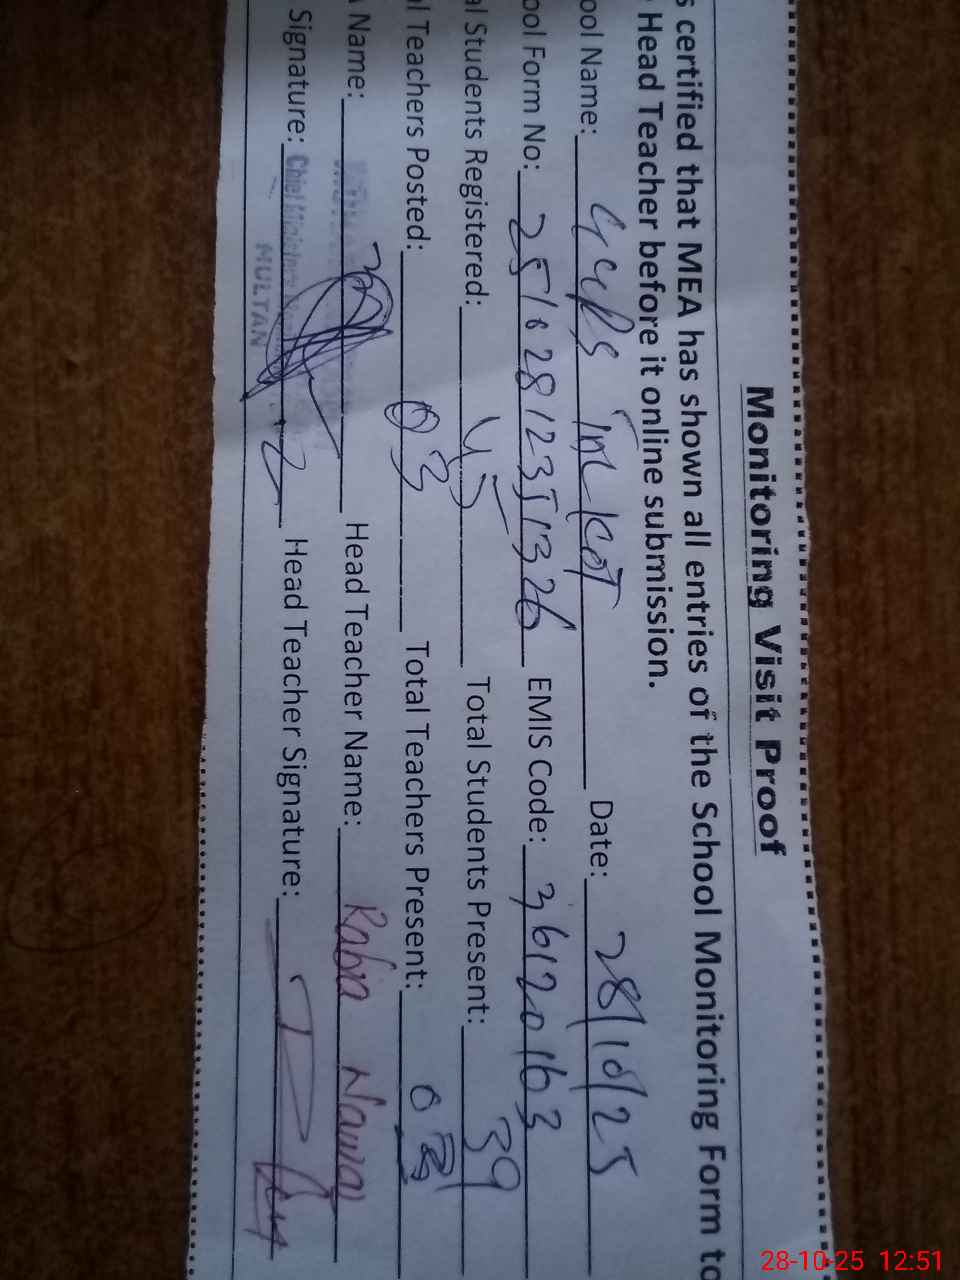 Monitoring Visit Proof
s certified that MEA has shown all entries of the School Monitoring Form to
Head Teacher before it online submission.
ool Name: Kot Date: 28/10/25
ool Form No: 25102812351326 EMIS Code: 36120163
al Students Registered: 45 Total Students Present: 39
al Teachers Posted: 03 Total Teachers Present: 03
A Name: Head Teacher Name: Rabia Nawaz
Signature: Head Teacher Signature:
Chief Minister
MULTAN
28-10-25 12:51